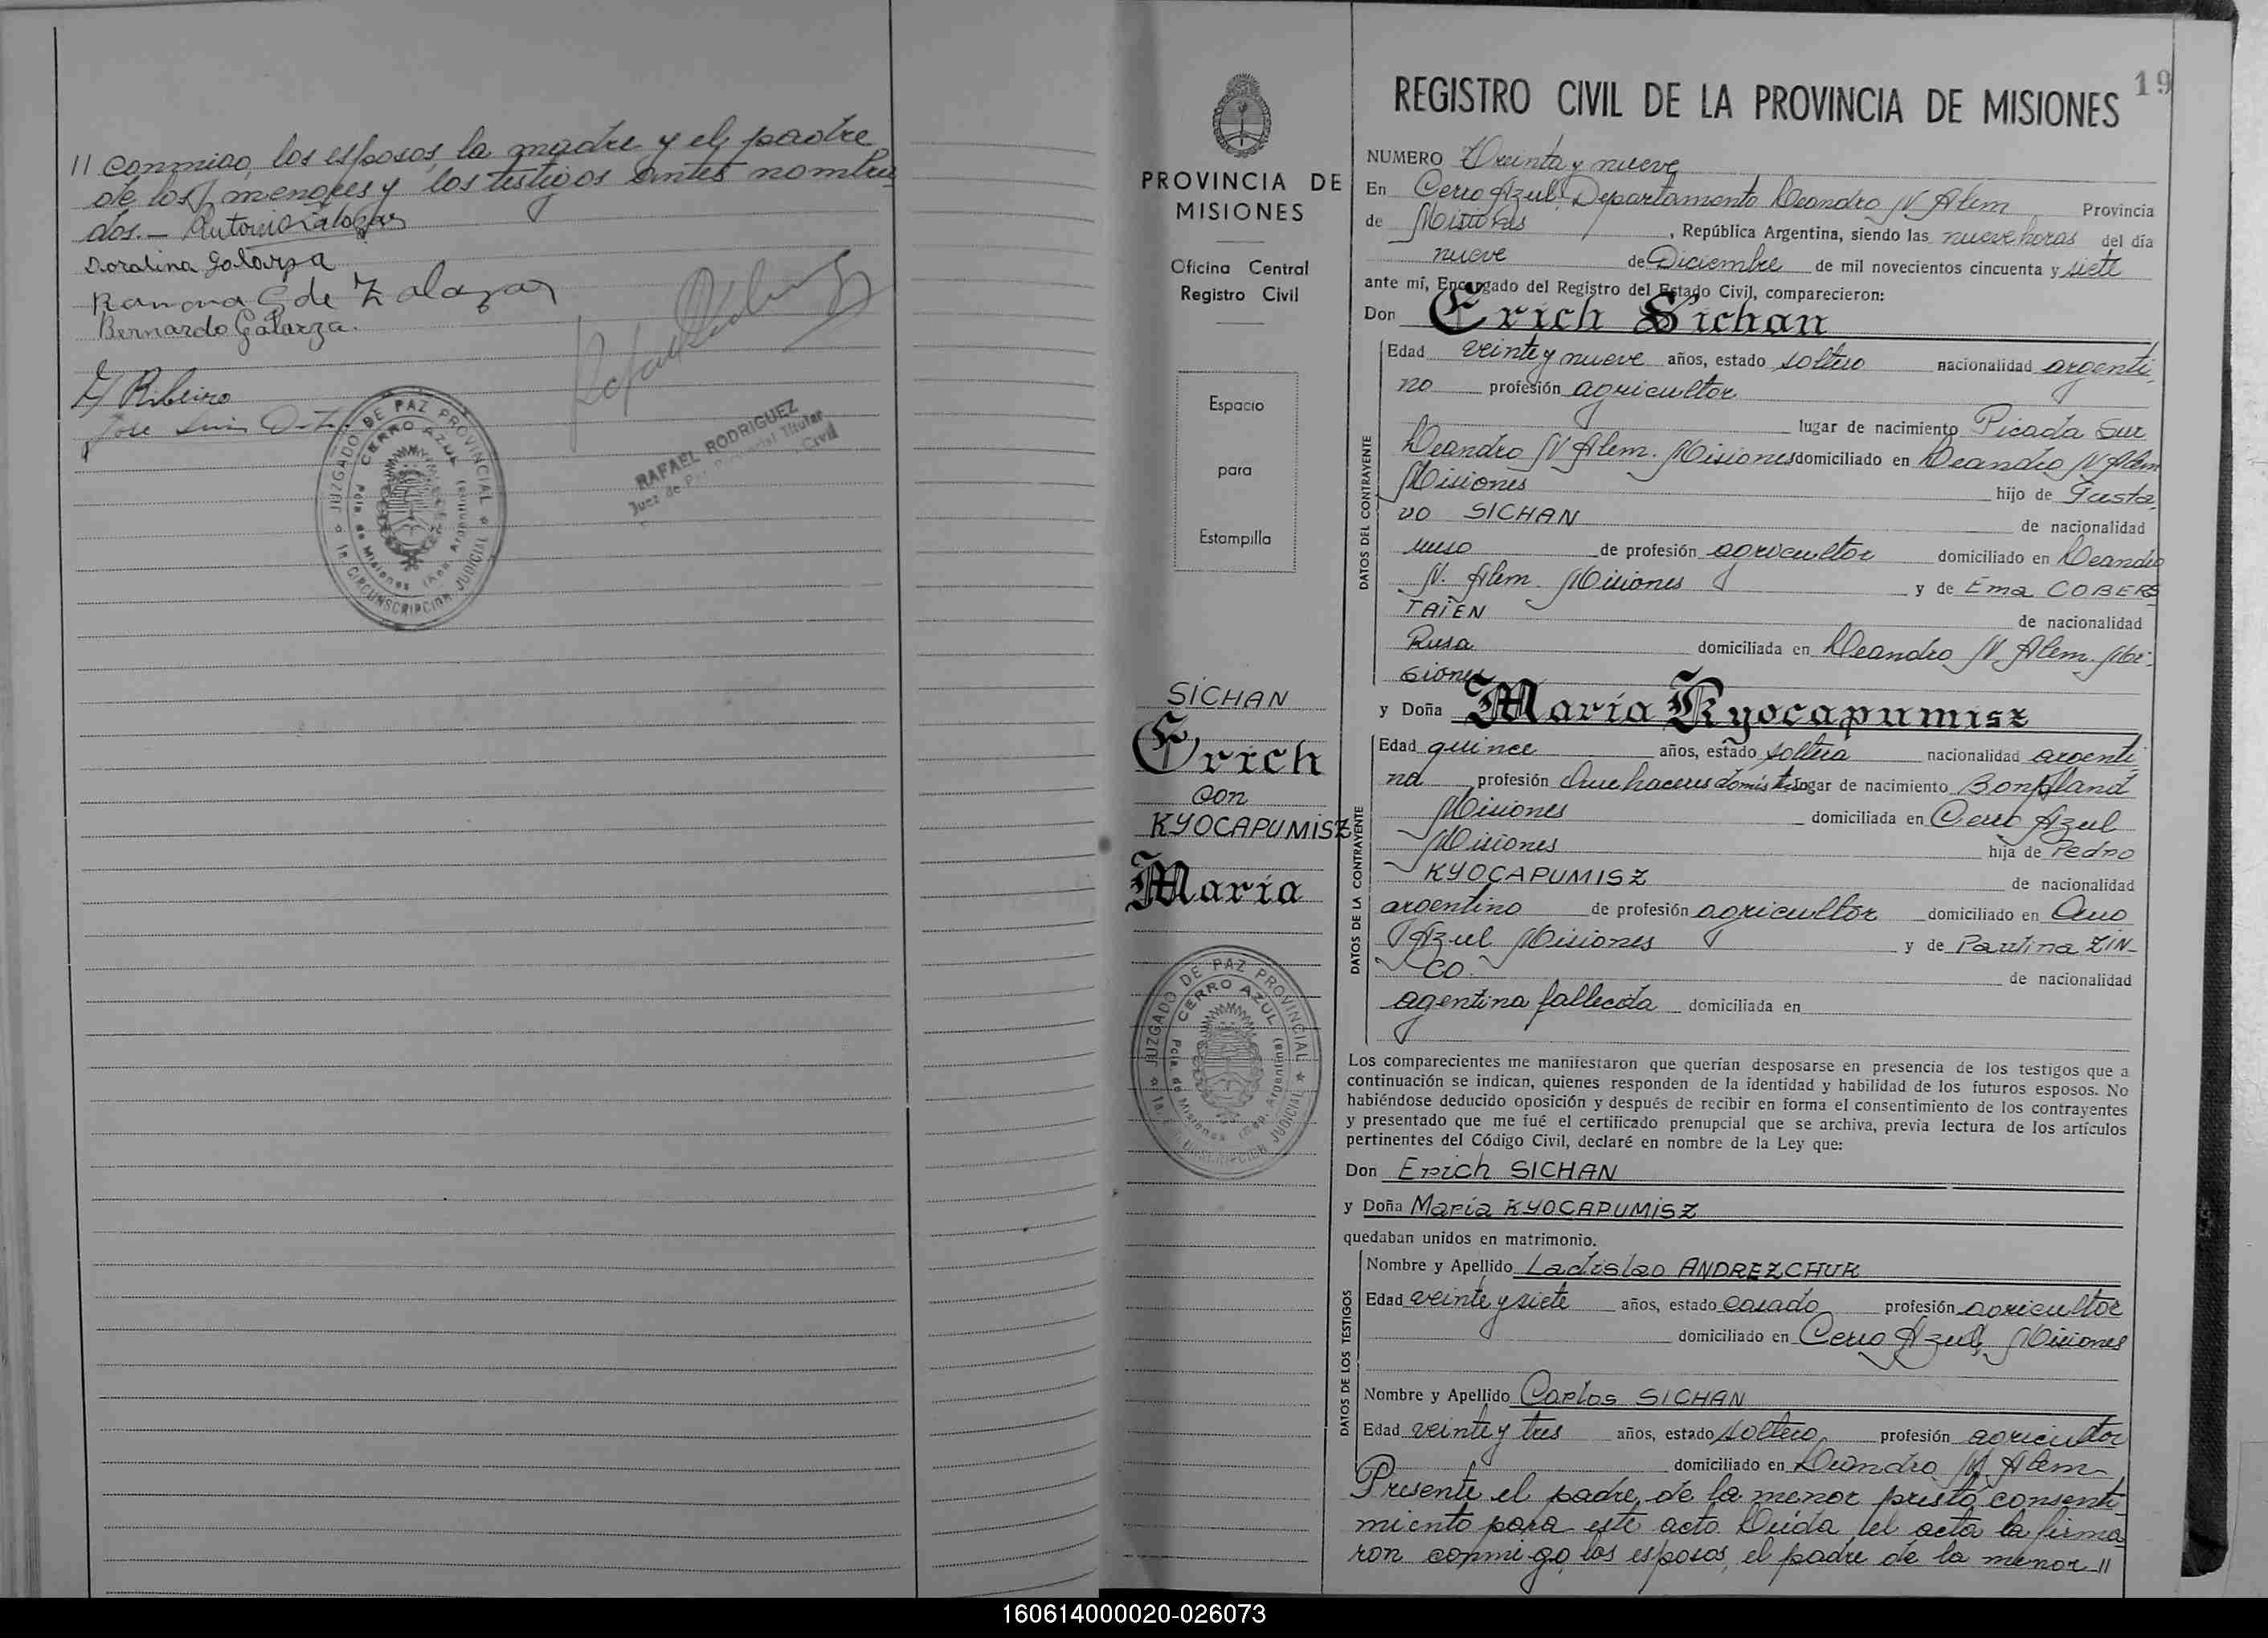 // conmigo, los esposos, la madre y el padre
de los menores y los testigos antes nombra
dos.— Antonio Zalazar
Doralina Galarza
Ramona G de Zalazar
Bernardo Galarza.
Ribeiro
Jose Luis
JUZGADO DE PAZ PROVINCIAL
CERRO AZUL
Pcia. de Misiones (Rep. Argentina)
1a. CIRCUNSCRIPCION JUDICIAL
RAFAEL RODRIGUEZ
Juez de Paz Provincial Titular
Civil
PROVINCIA DE
MISIONES
Oficina Central
Registro Civil
Espacio
para
Estampilla
SICHAN
Erich
con
KYOCAPUMISZ
María
JUZGADO DE PAZ PROVINCIAL
CERRO AZUL
Pcia. de Misiones (Rep. Argentina)
1a. CIRCUNSCRIPCION JUDICIAL
19
REGISTRO CIVIL DE LA PROVINCIA DE MISIONES
NUMERO Treinta y nueve
En Cerro Azul Departamento Leandro N Alem Provincia
de Misiones, República Argentina, siendo las nueve horas del día
nueve de Diciembre de mil novecientos cincuenta y siete
ante mí, Encargado del Registro del Estado Civil, comparecieron:
Don Erich Sichan
DATOS DEL CONTRAYENTE
Edad veinte y nueve años, estado soltero nacionalidad argenti
no profesión agricultor
lugar de nacimiento Picada Sur
Leandro N Alem. Misiones domiciliado en Leandro N Alem
Misiones hijo de Gusta
vo SICHAN de nacionalidad
ruso de profesión agricultor domiciliado en Leandro
N. Alem. Misiones y de Ema COBERS
TAIEN de nacionalidad
Rusa domiciliada en Leandro N Alem Mi
siones
y Doña María Kyocapumisz
DATOS DE LA CONTRAYENTE
Edad quince años, estado soltera nacionalidad argenti
na profesión Quehaceres domést lugar de nacimiento Bonpland
Misiones domiciliada en Cerro Azul
Misiones hija de Pedro
KYOCAPUMISZ de nacionalidad
argentino de profesión agricultor domiciliado en Cerro
Azul Misiones y de Paulina ZIN-
CO. de nacionalidad
agentina fallecida domiciliada en
Los comparecientes me manifestaron que querían desposarse en presencia de los testigos que a
continuación se indican, quienes responden de la identidad y habilidad de los futuros esposos. No
habiéndose deducido oposición y después de recibir en forma el consentimiento de los contrayentes
y presentado que me fué el certificado prenupcial que se archiva, previa lectura de los artículos
pertinentes del Código Civil, declaré en nombre de la Ley que:
Don Erich SICHAN
y Doña María KYOCAPUMISZ
quedaban unidos en matrimonio.
DATOS DE LOS TESTIGOS
Nombre y Apellido Ladislao ANDREZCHUK
Edad veinte y siete años, estado casado profesión agricultor
domiciliado en Cerro Azul, Misiones
Nombre y Apellido Carlos SICHAN
Edad veinte y tres años, estado soltero profesión agricultor
domiciliado en Leandro N Alem
Presente el padre de la menor prestó consenti
miento para este acto Leida el acta la firma
ron conmigo, los esposos, el padre de la menor //
160614000020-026073